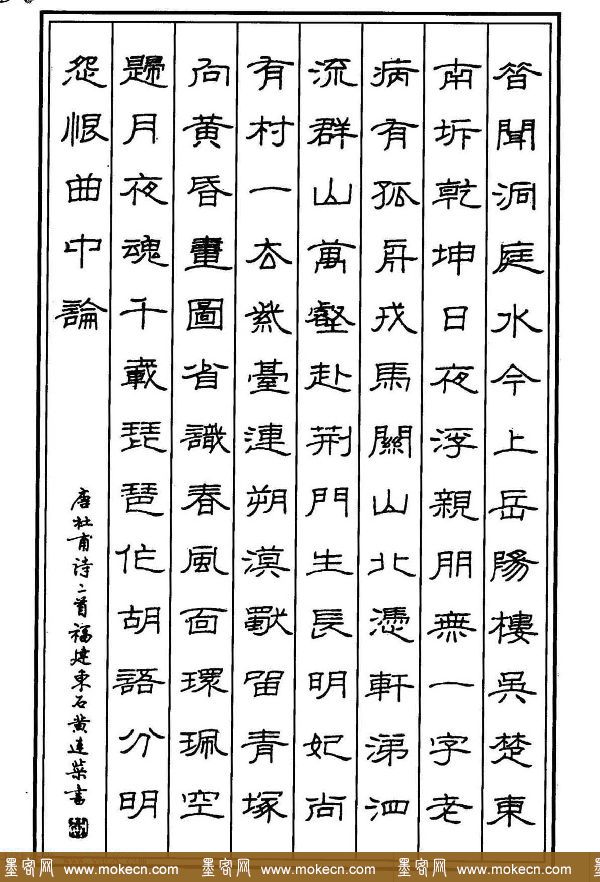 昔聞洞庭水今上岳陽樓吳楚東
南坼乾坤日夜浮親朋無一字老
病有孤舟戎馬關山北憑軒涕泗
流群山萬壑赴荊門生長明妃尚
有村一去紫臺連朔漠獨留青塚
向黃昏畫圖省識春風面環珮空
歸月夜魂千載琵琶作胡語分明
怨恨曲中論
唐杜甫诗二首福建東石黄書
墨客网 www.mokecn.com 墨客网 www.mokecn.com 墨客网 www.mokecn.com